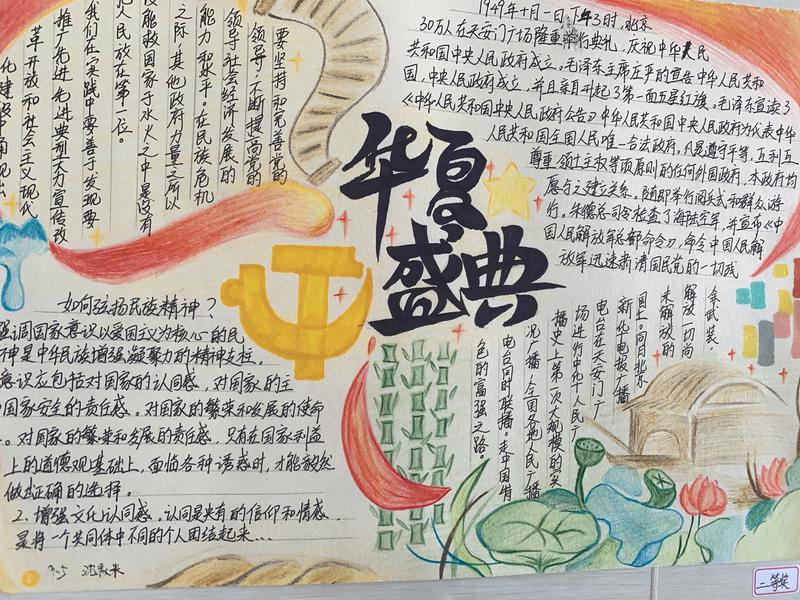 华夏
盛典
1949年十月一日,下午3时,北京
30万人在天安门广场隆重举行典礼,庆祝中华人民
共和国中央人民政府成立,毛泽东主席庄严的宣告中华人民共和
国,中央人民政府成立,并且亲自升起了第一面五星红旗,毛泽东宣读了
《中华人民共和国中央人民政府公告》中华人民共和国中央人民政府为代表中华
人民共和国全国人民唯一合法政府,凡是遵守平等,互利互
尊重领土主权等项原则的任何外国政府,本政府均
愿与之建交关系,随即举行阅兵式和群众游
行,朱德总司令检查了海陆空军,并宣布《中
国人民解放军总部命令》,命令中国人民解
放军迅速肃清国民党的一切残
余武装,
解放一切尚
未解放的
国土。同日北京
新华电报广播
电台在天安门广
场进行中华人民广
播史上第一次大规模的实
况广播,全国各地人民广播
电台同时联播。走中国特
色的富强之路。
要坚持和完善党的
领导,不断提高党的
领导社会经济发展的
能力和水平。在民族危机
之际,其他政府力量之所以
没能救国家于水火之中,是没有
把人民放在第一位。
我们在实践中要善于发现要
推广先进,先进典型大力宣传改
革开放和社会主义现代
化建设中涌现出
如何弘扬民族精神?
强调国家意识以爱国主义为核心的民
神是中华民族增强凝聚力的精神支柱,
意识应包括对国家的认同感,对国家的主
国家安全的责任感。对国家的繁荣和发展的使命
。对国家的繁荣和发展的责任感,只有在国家利益
上的道德观基础上,面临各种诱惑时,才能毅然
做出正确的选择。
2、增强文化认同感。认同是共有的信仰和情感,
是将一个共同体中不同的个人团结起来...
二等奖